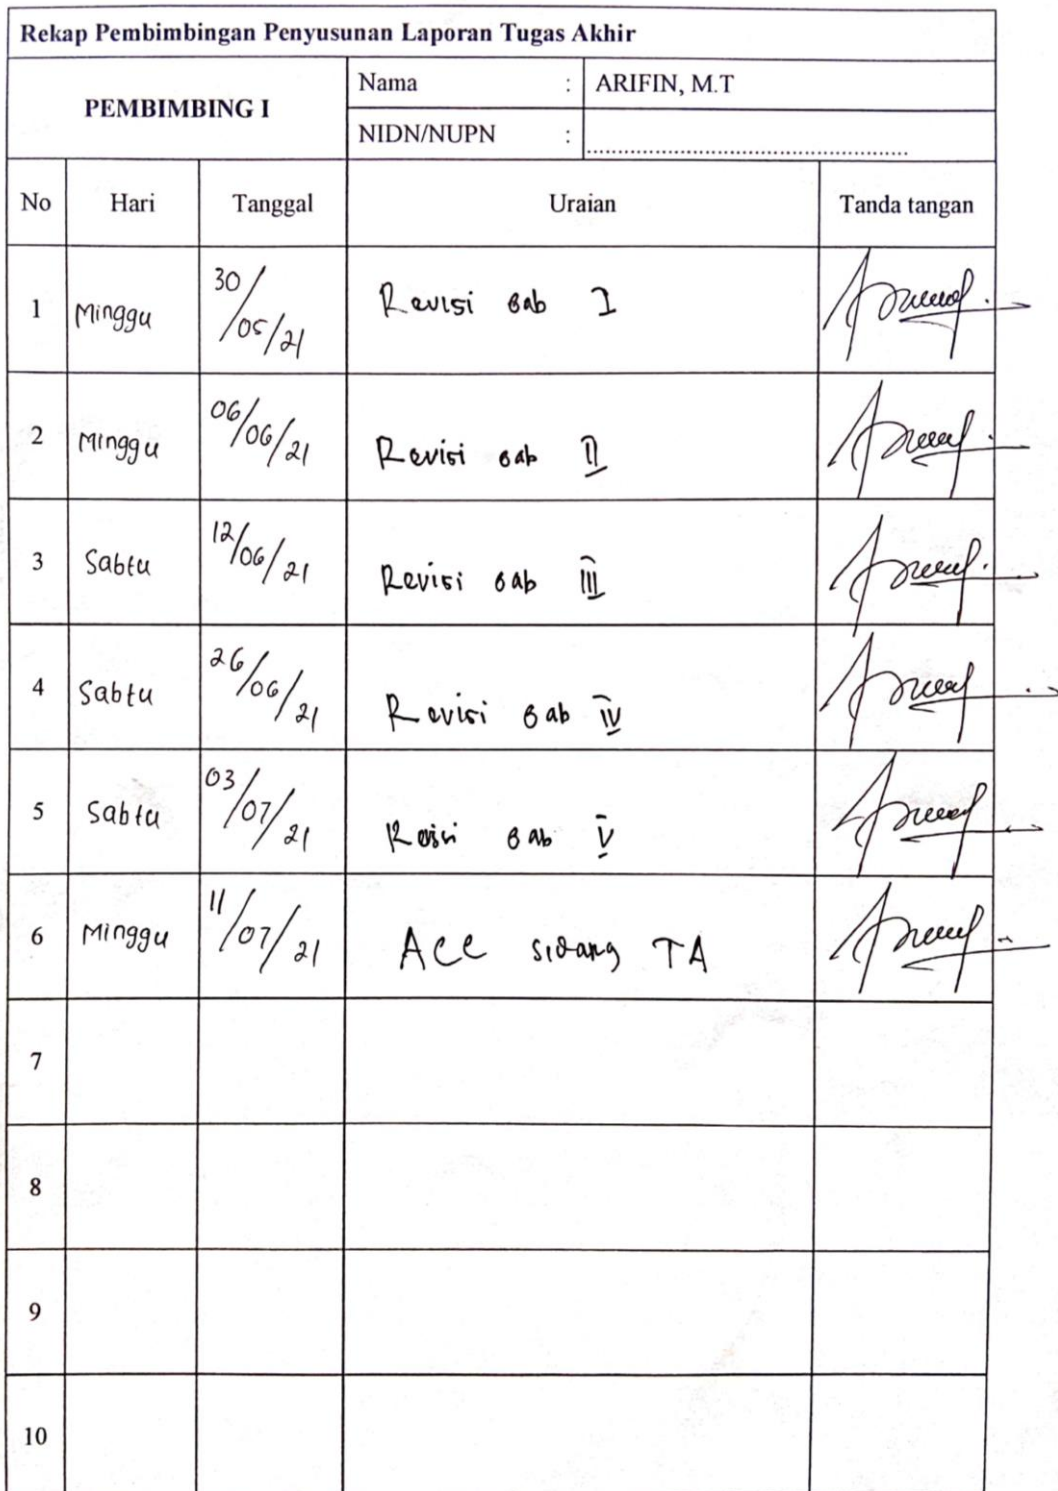 Rekap Pembimbingan Penyusunan Laporan Tugas Akhir
PEMBIMBING I
Nama : ARIFIN, M.T
NIDN/NUPN : ....................................................
No Hari Tanggal Uraian Tanda tangan
1 Minggu 30/05/21 Revisi Bab I
2 Minggu 06/06/21 Revisi Bab II
3 Sabtu 12/06/21 Revisi Bab III
4 Sabtu 26/06/21 Revisi Bab IV
5 Sabtu 03/07/21 Bab V
6 Minggu 11/07/21 ACC sidang TA
7
8
9
10